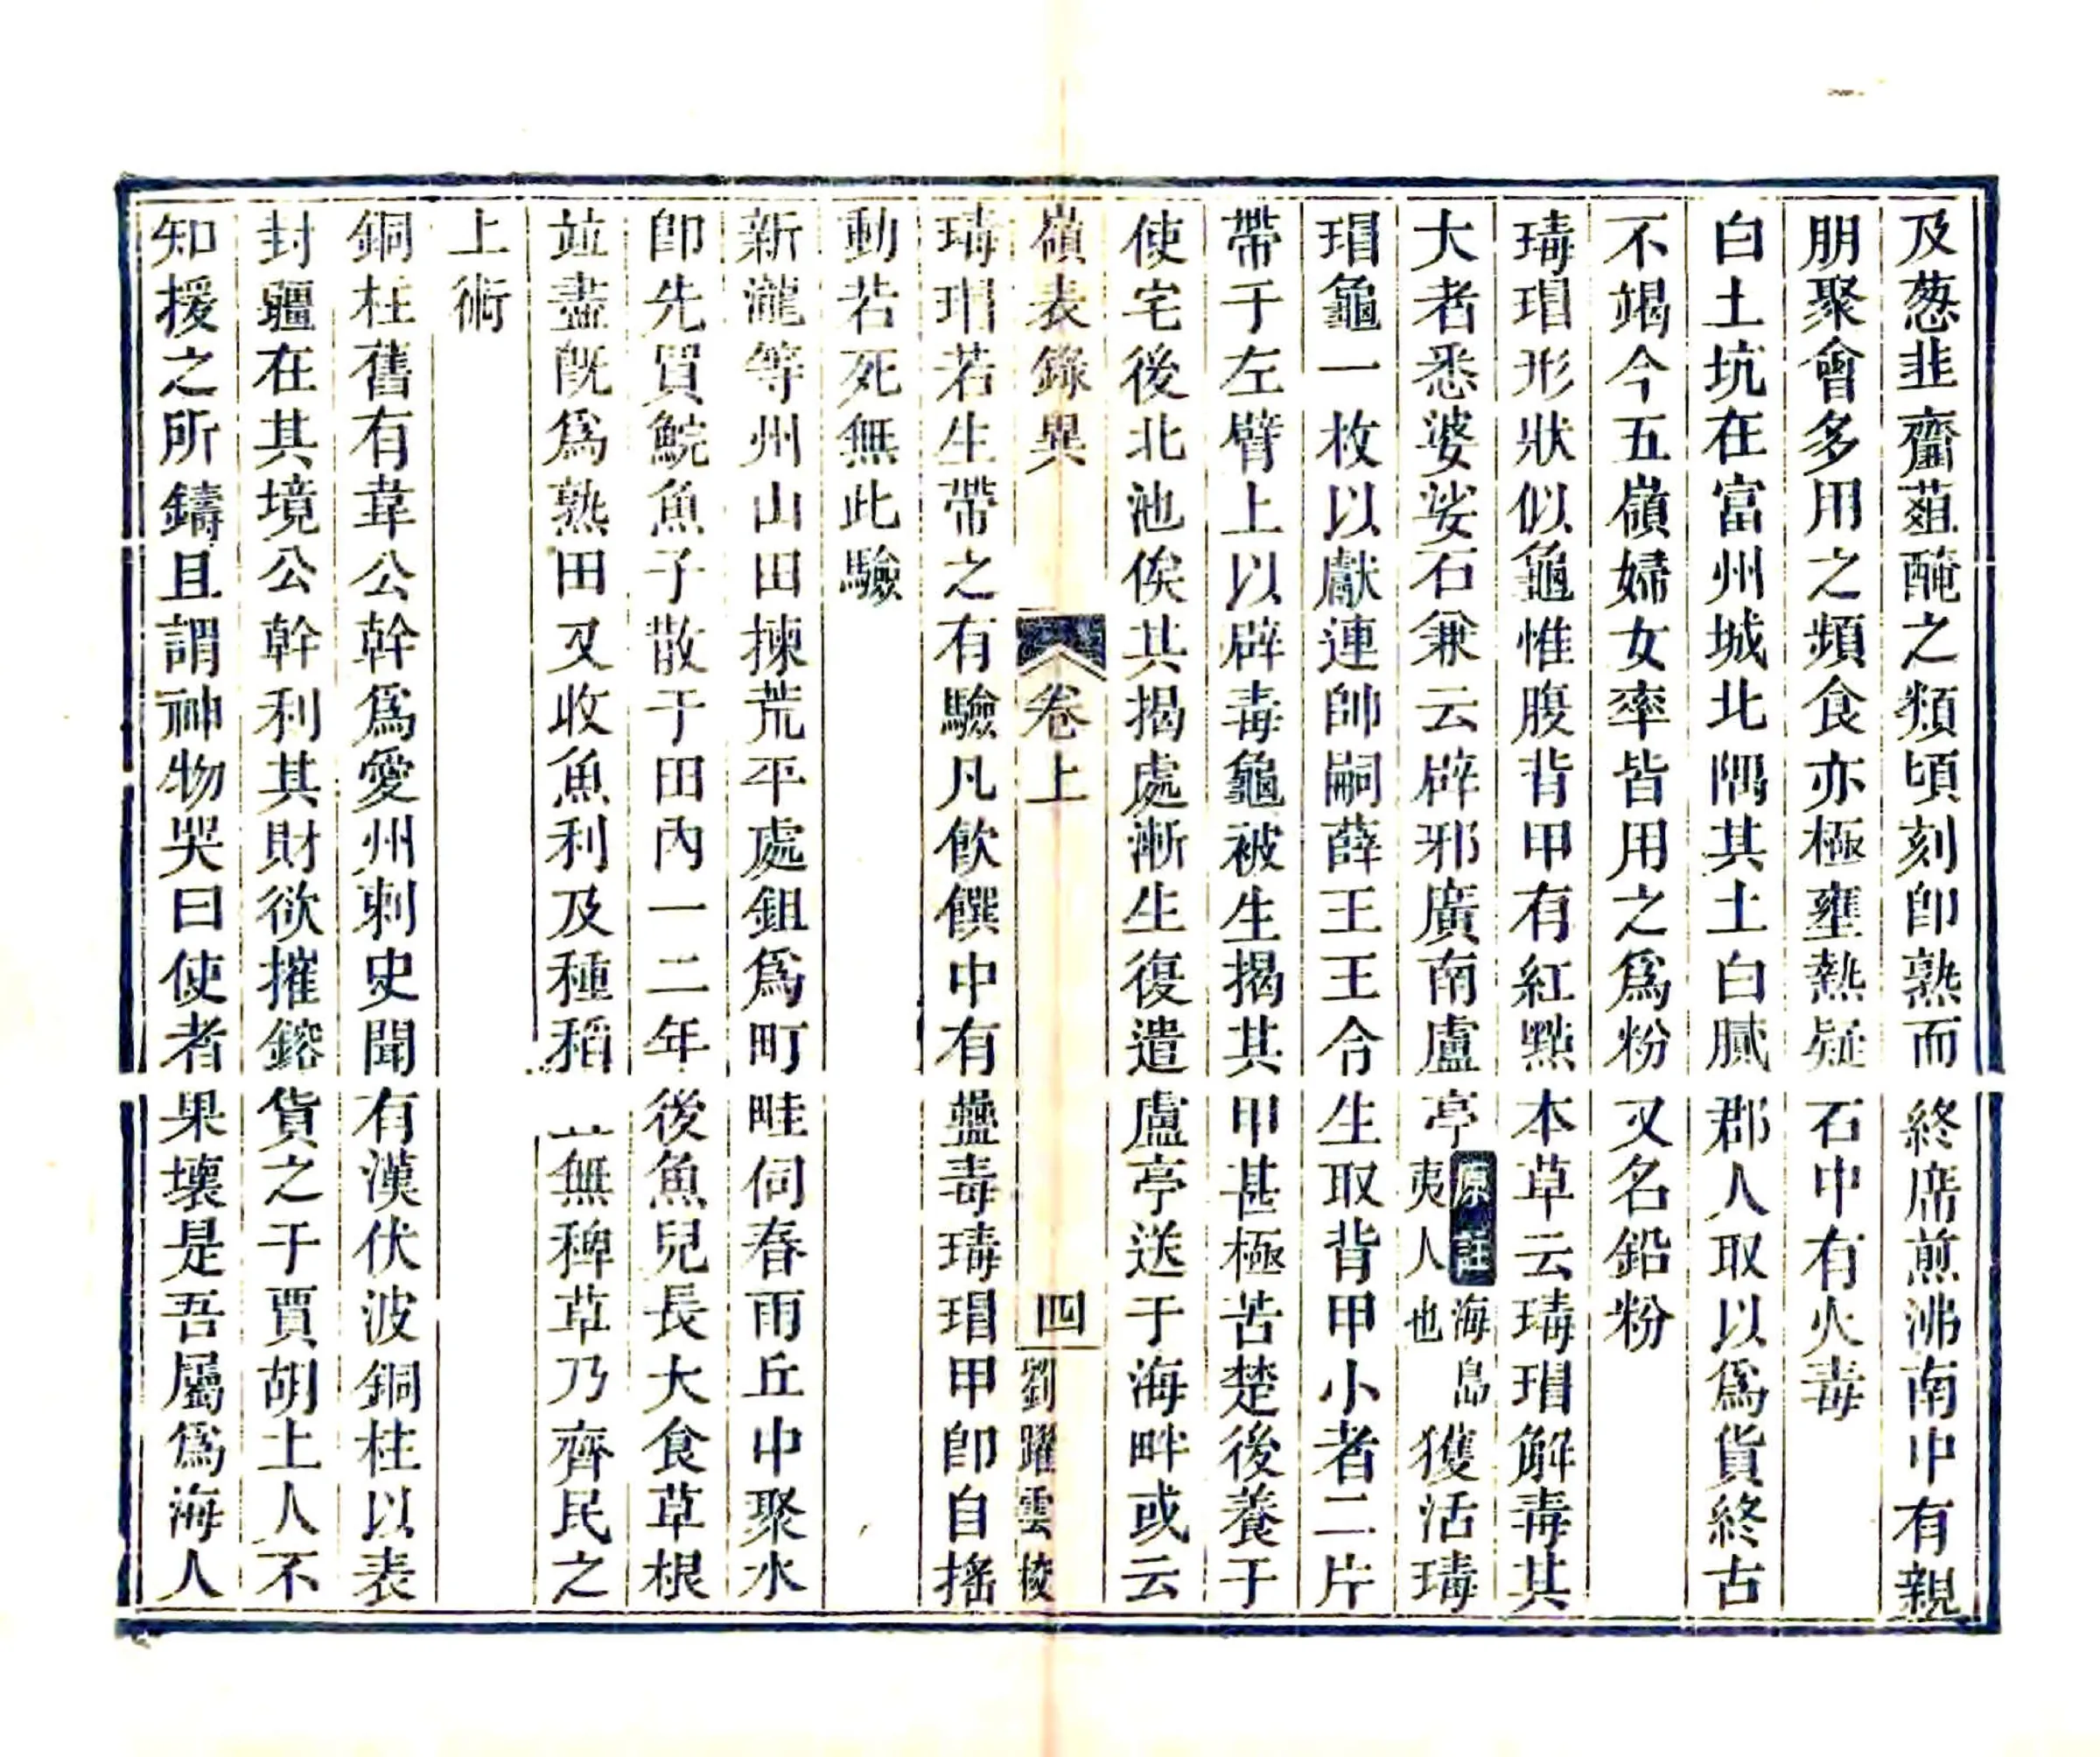 及葱韭虀葅醃之類頃刻卽熟而終席煎沸南中有親
朋聚會多用之頻食亦極壅熱疑石中有火毒
白土坑在富州城北隅其土白膩郡人取以爲貨終古
不竭今五嶺婦女率皆用之爲粉又名鉛粉
瑇瑁形狀似龜惟腹背甲有紅㸃本草云瑇瑁解毒其
大者悉婆娑石兼云辟邪廣南盧亭原註海島夷人也獲活瑇
瑁龜一枚以獻連帥嗣薛王王令生取背甲小者二片
帶于左臂上以辟毒龜被生揭其甲甚極苦楚後養于
使宅後北池俟其揭處漸生復遣盧亭送于海畔或云
嶺表錄異 卷上 四 劉躍雲校
瑇瑁若生帶之有驗凡飲饌中有蠱毒瑇瑁甲卽自搖
動若死無此驗
新瀧等州山田揀荒平處鉏爲町畦伺春雨丘中聚水
卽先買鯇魚子散于田內一二年後魚兒長大食草根
並盡旣爲熟田又收魚利及種稻且無稗草乃齊民之
上術
銅柱舊有韋公幹爲愛州刺史聞有漢伏波銅柱以表
封疆在其境公幹利其財欲摧鎔貨之于賈胡土人不
知援之所鑄且謂神物哭曰使者果壞是吾屬爲海人